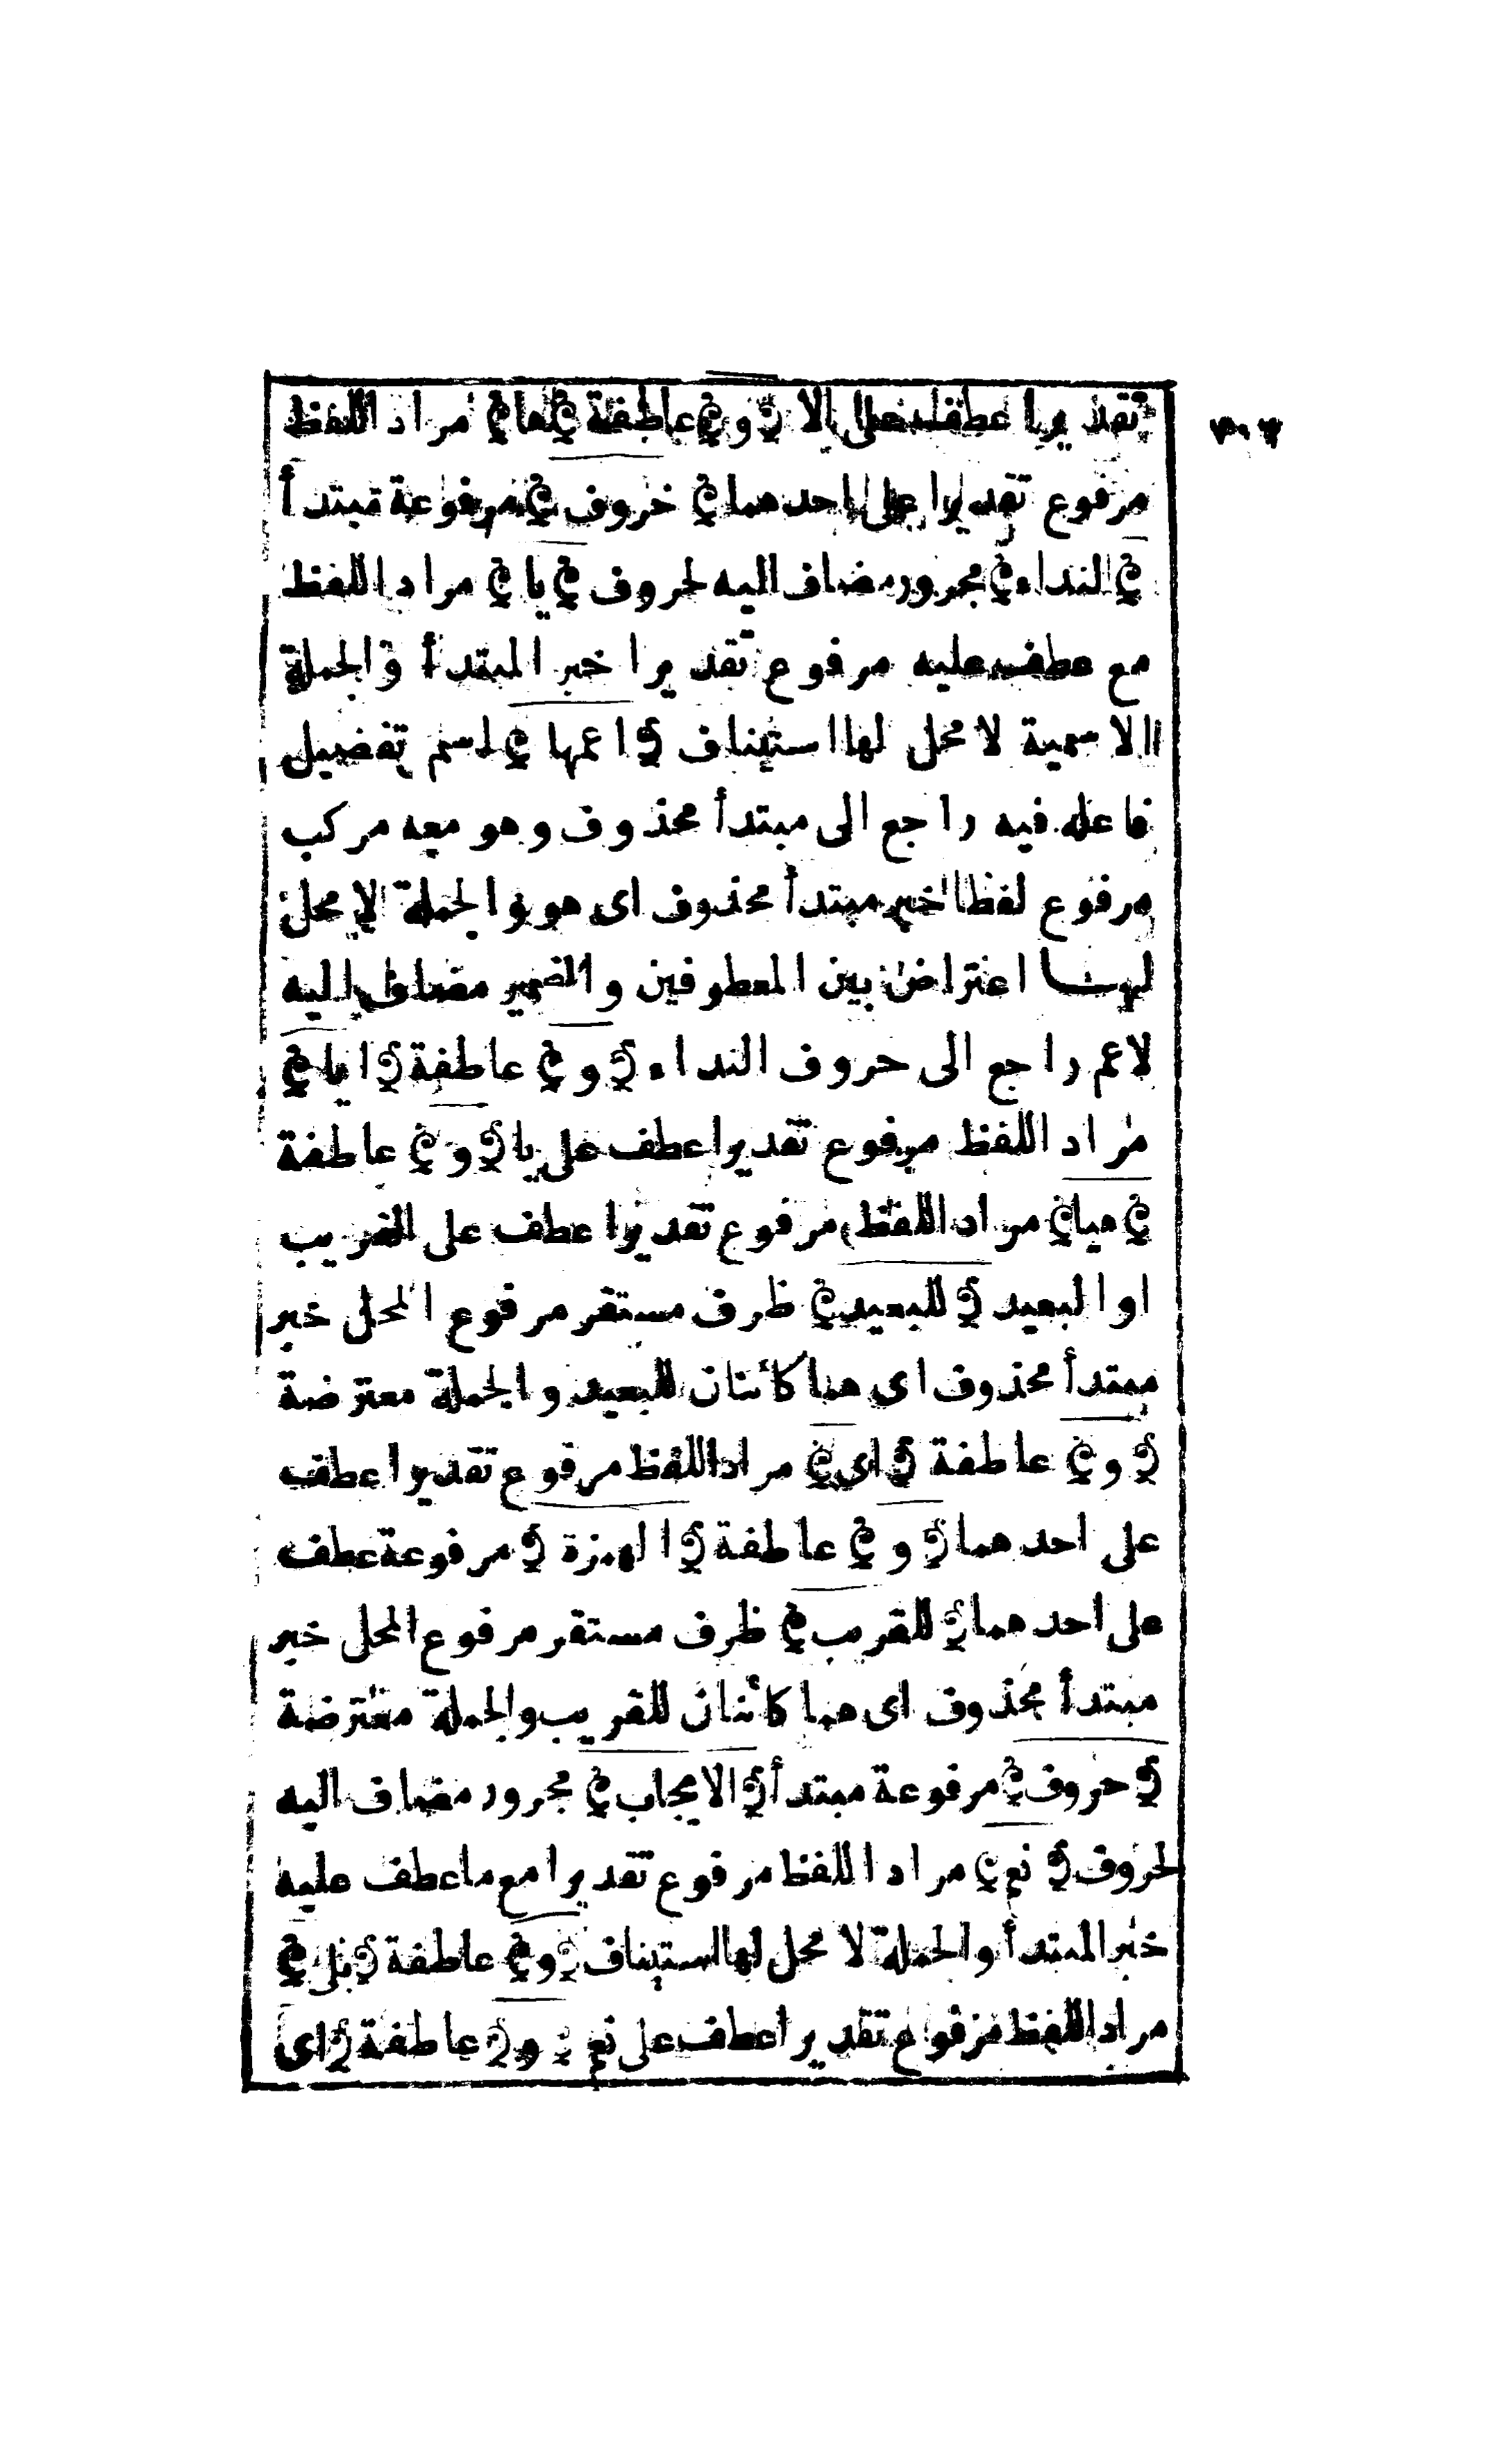 تقديرا عطف على الا ﴿ و ﴾ عاطفة ﴿ لها ﴾ مراد اللفظ
مرفوع تقديرا على احدهما ﴾ حروف ﴿ مرفوعة مبتدأ
﴿ النداء ﴾ مجرور مضاف اليه لحروف ﴿ يا ﴾ مراد اللفظ
مع عطف عليه مرفوع تقديرا خبر المبتدأ والجملة
الاسمية لا محل لها استيناف ﴿ اعمها ﴾ اسم تفضيل
فاعله فيه راجع الى مبتدأ محذوف وهو معه مركب
مرفوع لفظا خبر مبتدأ محذوف اى هو والجملة لا محل
لهـــا اعتراض بين المعطوفين والضمير مضاف اليه
لاعم راجع الى حروف النداء ﴿ و ﴾ عاطفة ﴿ ايا ﴾
مراد اللفظ مرفوع تقديرا عطف على يا ﴿ و ﴾ عاطفة
﴿ هيا ﴾ مراد اللفظ مرفوع تقديرا عطف على القريب
او البعيد ﴿ للبعيد ﴾ ظرف مستقر مرفوع المحل خبر
مبتدأ محذوف اى هما كائنان للبعيد والجملة معترضة
﴿ و ﴾ عاطفة ﴿ اى ﴾ مراد اللفظ مرفوع تقديرا عطف
على احدهما ﴿ و ﴾ عاطفة ﴿ الهمزة ﴾ مرفوعة عطف
على احدهما ﴿ للقريب ﴾ ظرف مستقر مرفوع المحل خبر
مبتدأ محذوف اى هما كائنان للقريب والجملة معترضة
﴿ حروف ﴾ مرفوعة مبتدأ ﴿ الايجاب ﴾ مجرور مضاف اليه
لحروف ﴿ نعم ﴾ مراد اللفظ مرفوع تقديرا مع ما عطف عليه
خبر المبتدأ والجملة لا محل لها استيناف ﴿ و ﴾ عاطفة ﴿ بلى ﴾
مراد اللفظ مرفوع تقديرا عطف على نعم ﴿ و ﴾ عاطفة ﴿ اى